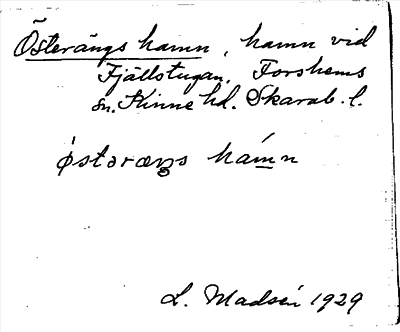 Österängs hamn, hamn vid
Fjällstugan, Forshems
sn. Kinne hd. Skarab. l.
östəräŋs hám̲n
L. Madsén 1929